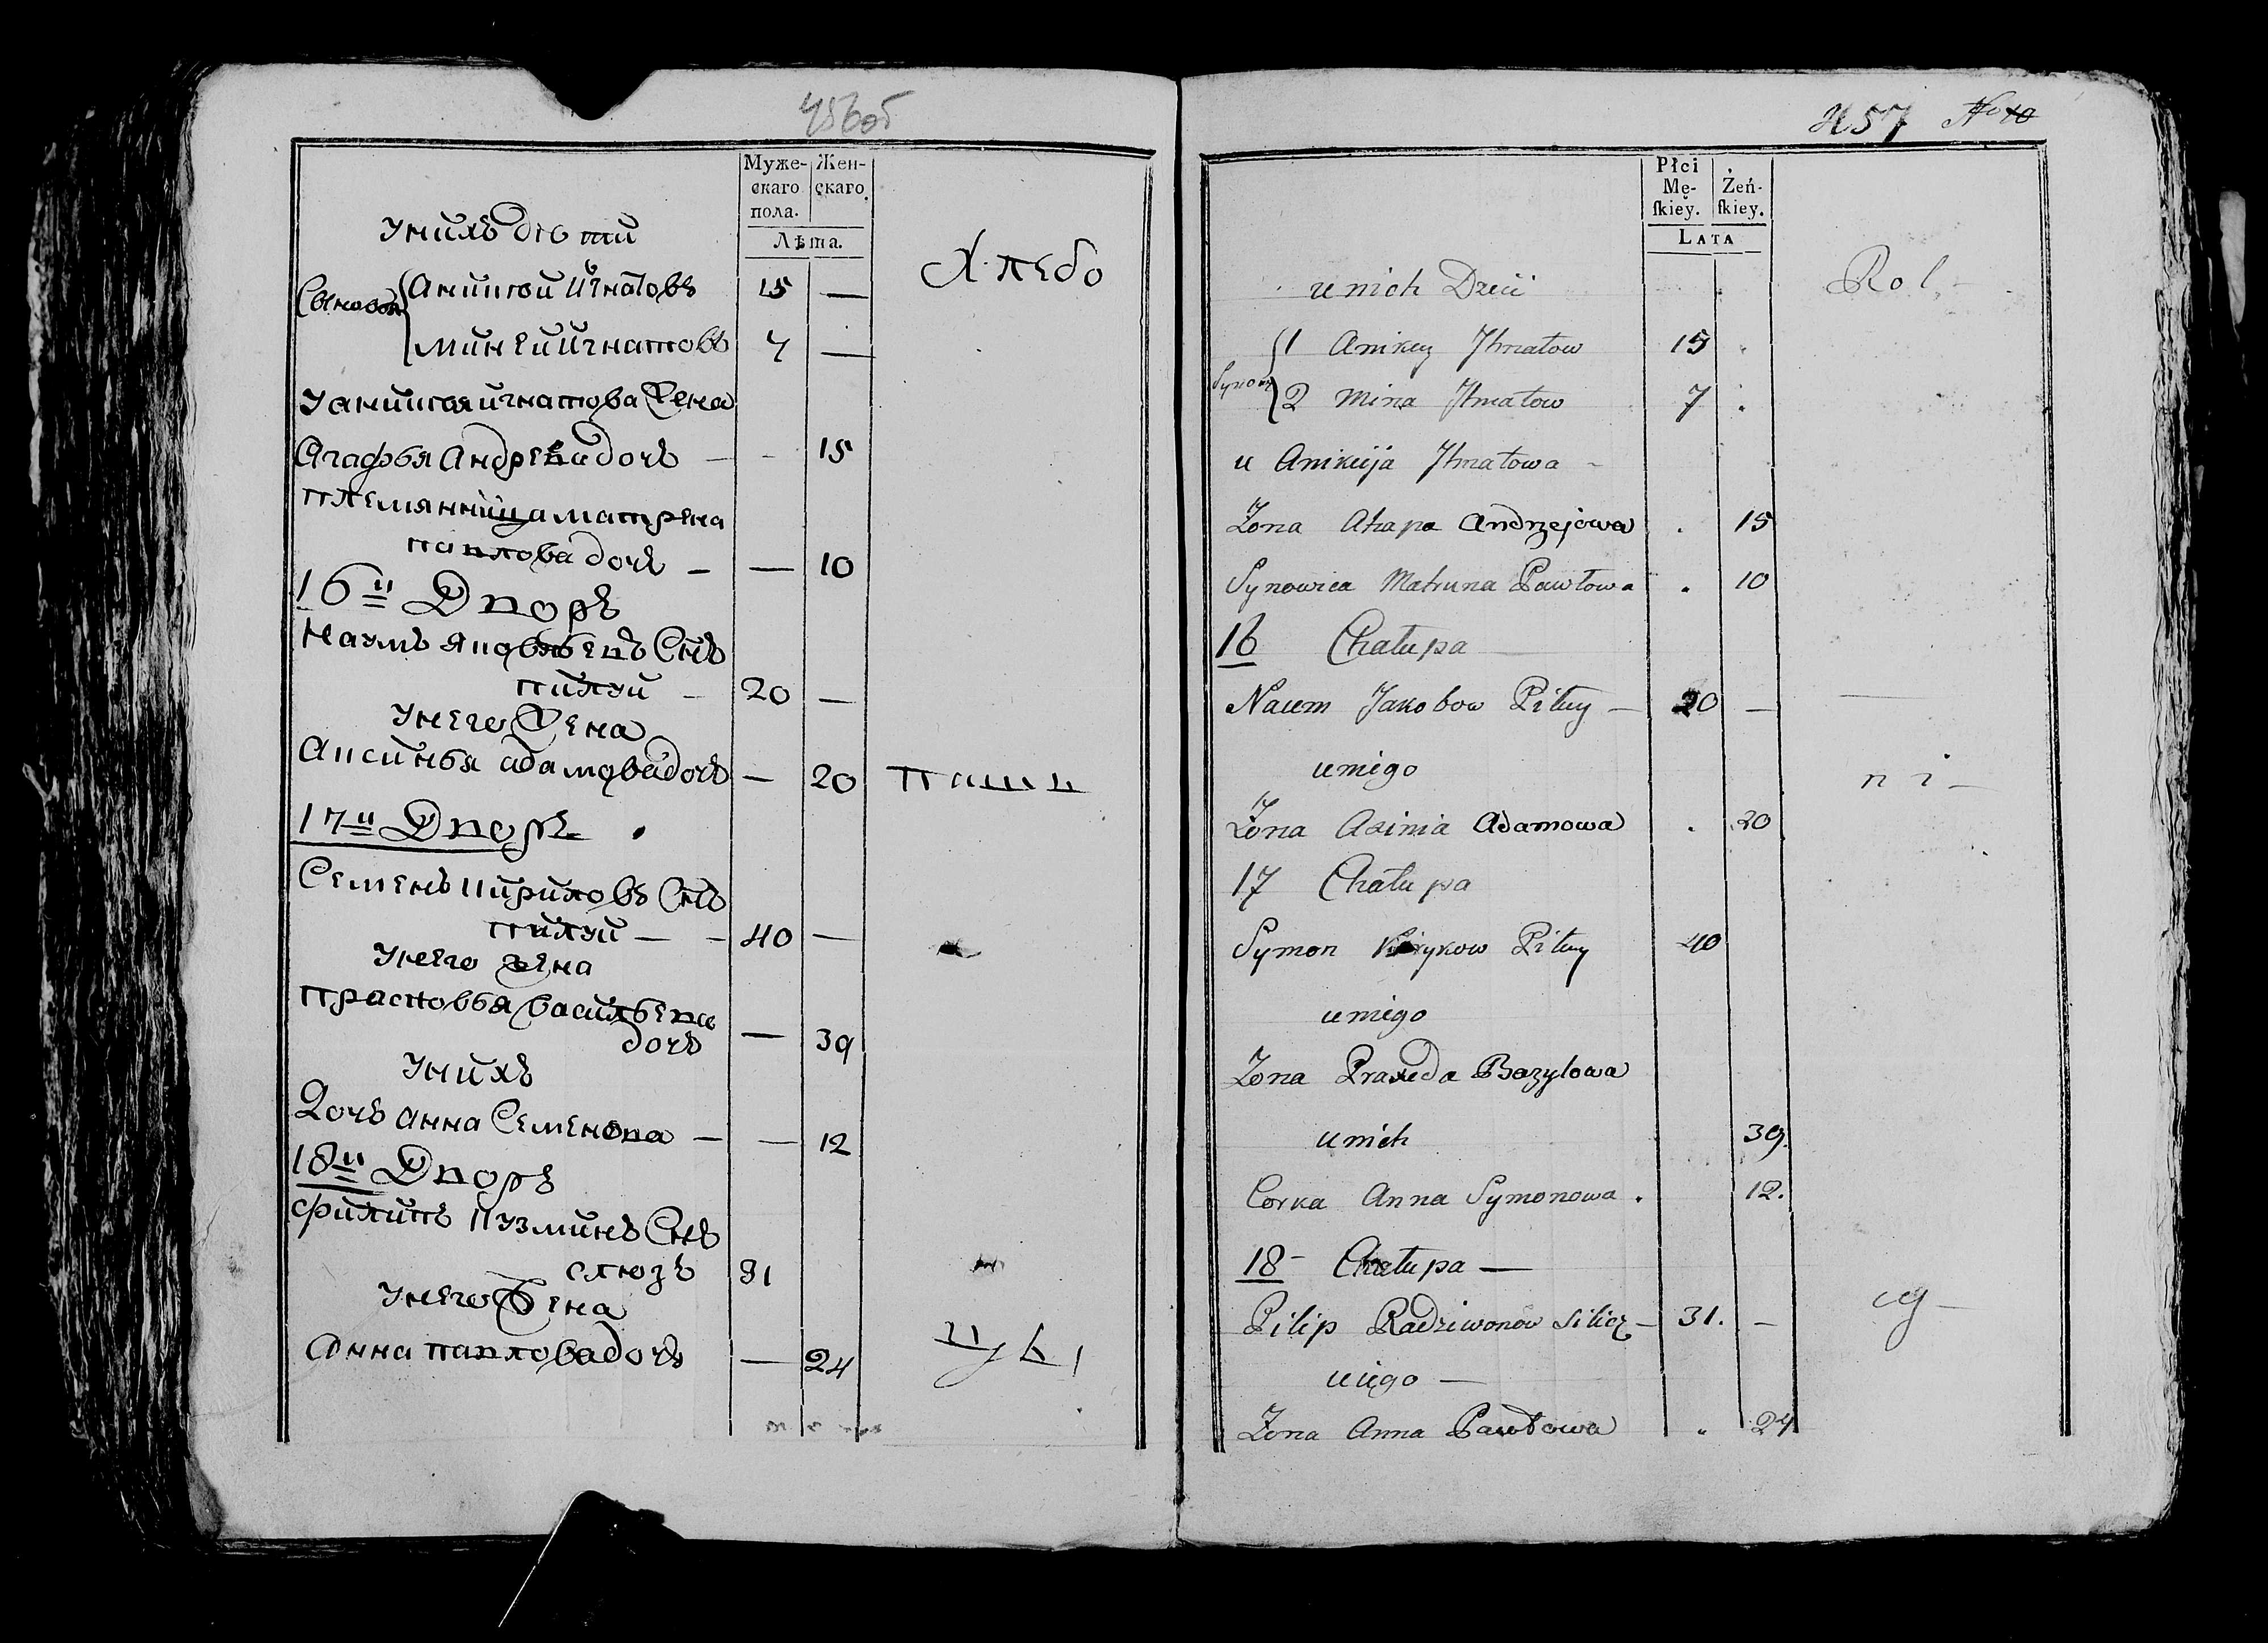 456об
Муже-
скаго
пола.
Жен-
скаго
Лѣта.
У нихъ дѣти
Хлебо
Сыновья
Аникей Игнатовъ 15 —
Миней Игнатовъ 7 —
У аникея игнатова Жена
Агафья Андреева дочь — - 15
племянница матрена
павлова дочь — — 10
16й Дворъ
Наумъ яковлевъ Снъ
пилуй — 20 —
У него Жена
Аксинья адамова дочь — 20
паш
17й Дворъ
Семенъ кириловъ Снъ
пилуй — - 40 —
У него жена
прасковья васильева
дочь — 39
У нихъ
Дочь анна Семенова — — 12
18й Дворъ
филипъ кузминъ Снъ
слюзъ 31
У него Жена
Анна павлова дочь — 24
457 No 10
Płci
Mę-
ſkiey.
Żeń-
ſkiey.
LATA
Rol,-
u nich Dzieci
Synowie
1 Anikey Ihnatow 15
2 Mina Ihnatow 7
u Anikieja Ihnatowa -
Zona Ahapa Andrzejowa . 15
Synowica Matruna Pawłowa . 10
16 Chałupa
Naum Jakobow Piłuy — 20 —
u niego
ni-
Zona Axinia Adamowa . 20
17 Chałupa
Symon Kirykow Piłuy 40
u niego
Zona Praxeda Bazylowa
u nich 39.
Corka Anna Symonowa . 12.
18 - Chałupa —
Pilip Radziwonow Silicz — 31. —
cy-
u niego —
Zona Anna Pawłowa . 24